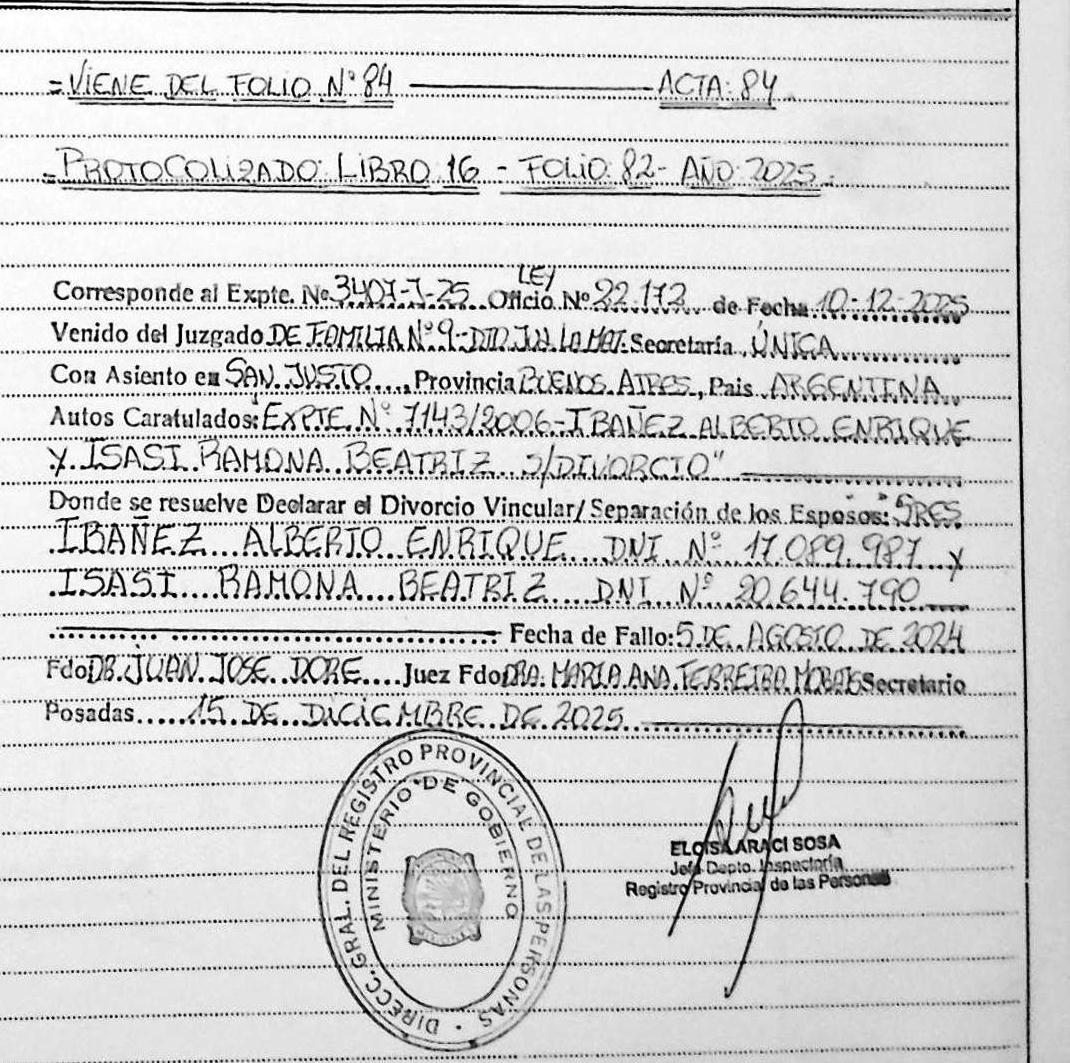 =VIENE DEL FOLIO Nº 84 ACTA: 84
=PROTOCOLIZADO: LIBRO 16 - FOLIO: 82- AÑO 2025.
LEY
Corresponde al Expte. Nº 3407-J-25 Oficio Nº 22.172 de Fecha 10-12-2025
Venido del Juzgado DE FAMILIA Nº 9-DTO. JUD. LA MAT. Secretaría ÚNICA
Con Asiento en SAN JUSTO Provincia BUENOS AIRES, Pais ARGENTINA
Autos Caratulados: EXPTE. Nº 7143/2006-IBAÑEZ ALBERTO ENRIQUE
Y ISASI RAMONA BEATRIZ S/DIVORCIO"
Donde se resuelve Declarar el Divorcio Vincular/Separación de los Esposos: SRES
IBAÑEZ ALBERTO ENRIQUE DNI Nº 17.089.987 Y
ISASI RAMONA BEATRIZ DNI Nº 20.644.790
Fecha de Fallo: 5 DE AGOSTO DE 2024
Fdo DR. JUAN JOSE DORE Juez Fdo DRA. MARIA ANA Secretario
Posadas 15 DE DICIEMBRE DE 2025
DIRECC. GRAL. DEL REGISTRO PROVINCIAL DE LAS PERSONAS
MINISTERIO DE GOBIERNO
MISIONES
ELOISA ARACI SOSA
Jefa Depto. Inspectoría
Registro Provincial de las Personas